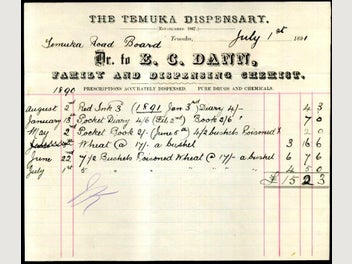 THE TEMUKA DISPENSARY.
(ESTABLISHED 1867.)
Temuka, July 1st 1891
Temuka Road Board
Dr. to E. C. DANN,
FAMILY AND DISPENSING CHEMIST.
PRESCRIPTIONS ACCURATELY DISPENSED. PURE DRUGS AND CHEMICALS.
1890
August 2nd Red Ink 3 (1891 Jan 3rd Diary 4/- 4 3
January 13th Pocket Diary 4/6 (Feb 2nd) Book 2/6 7 0
May 2 Pocket Book 2/- (June 5th) 4/2 bushels Poisoned X 2 0
Wheat @ 17/- a bushel 3 16 6
June 22 7 1/2 Bushels Poisoned Wheat @ 17/- a bushel 6 7 6
July 1st 5 " " " " " 4 5 0
£ 15 2 3